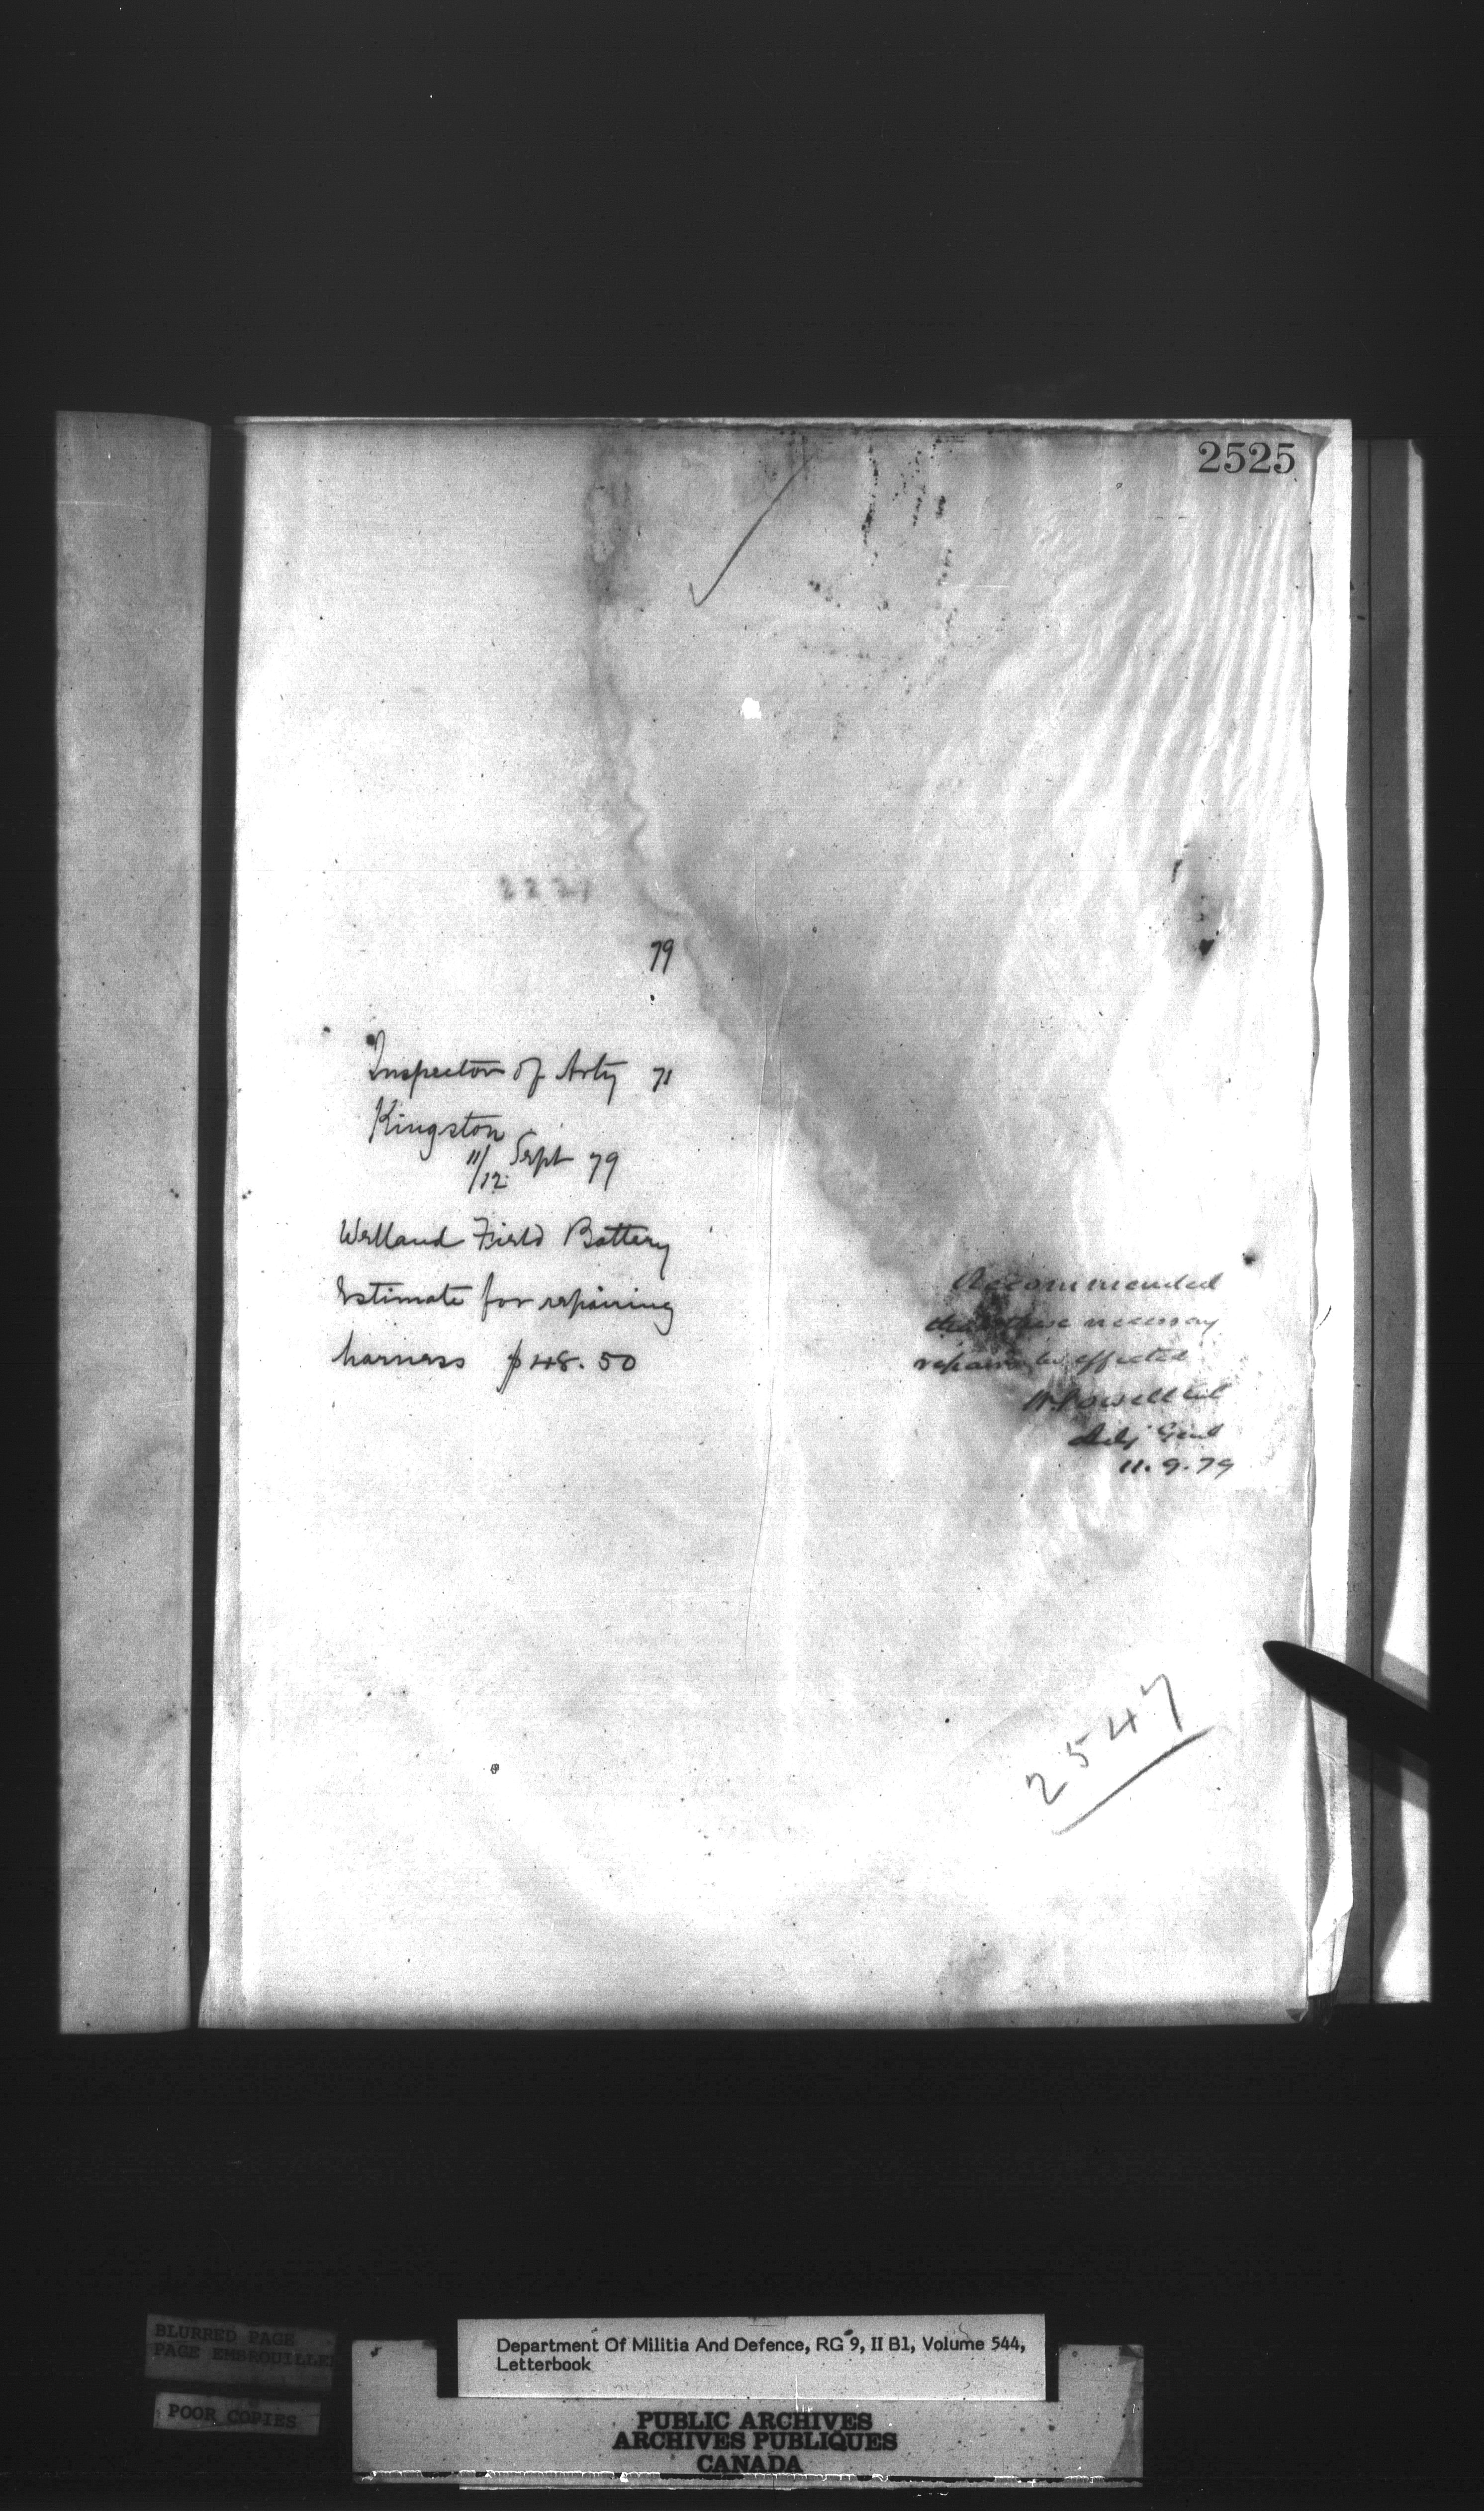 2525
79
Inspector of Arty 71
Kingston
11/12 Sept 79
Welland Field Battery
Estimate for repairing
harness $48.50
Recommended
that these necessary
repairs be effected
W Powell Col
Adj Genl
11.9.79
2547
BLURRED PAGE
PAGE EMBROUILLE
POOR COPIES
Department Of Militia And Defence, RG 9, II B1, Volume 544,
Letterbook
PUBLIC ARCHIVES
ARCHIVES PUBLIQUES
CANADA